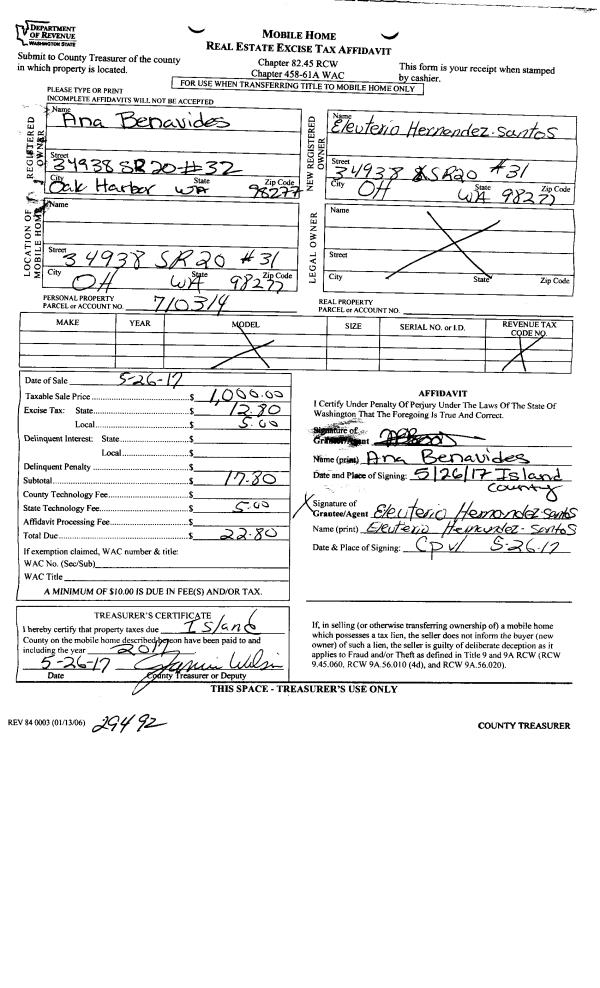 DEPARTMENT
OF REVENUE
WASHINGTON STATE
MOBILE HOME
REAL ESTATE EXCISE TAX AFFIDAVIT
Submit to County Treasurer of the county
in which property is located.
Chapter 82.45 RCW
Chapter 458-61A WAC
This form is your receipt when stamped
by cashier.
FOR USE WHEN TRANSFERRING TITLE TO MOBILE HOME ONLY
PLEASE TYPE OR PRINT
INCOMPLETE AFFIDAVITS WILL NOT BE ACCEPTED
REGISTERED OWNER
Name Ana Benavides
Street 34938 SR 20 #32
City Oak Harbor State WA Zip Code 98277
NEW REGISTERED OWNER
Name Eleuterio Hernendez-Santos
Street 34938 SR20 #31
City OH State WA Zip Code 98277
LOCATION OF MOBILE HOME
Name
Street 34938 SR20 #31
City OH State WA Zip Code 98277
LEGAL OWNER
Name
Street
City State Zip Code
PERSONAL PROPERTY
PARCEL or ACCOUNT NO. 710314
REAL PROPERTY
PARCEL or ACCOUNT NO.
MAKE YEAR MODEL SIZE SERIAL NO. or I.D. REVENUE TAX CODE NO.
Date of Sale 5-26-17
Taxable Sale Price $ 1,000.00
Excise Tax: State $ 12.80
Local $ 5.00
Delinquent Interest: State $
Local $
Delinquent Penalty $
Subtotal $ 17.80
County Technology Fee $
State Technology Fee $ 5.00
Affidavit Processing Fee $
Total Due $ 22.80
If exemption claimed, WAC number & title:
WAC No. (Sec/Sub)
WAC Title
A MINIMUM OF $10.00 IS DUE IN FEE(S) AND/OR TAX.
AFFIDAVIT
I Certify Under Penalty Of Perjury Under The Laws Of The State Of
Washington That The Foregoing Is True And Correct.
Signature of
Grantor/Agent
Name (print) Ana Benavides
Date and Place of Signing: 5/26/17 Island
County
Signature of
Grantee/Agent Eleuterio Hernandez santos
Name (print) Eleuterio Hernendez-santos
Date & Place of Signing: Cpvl 5-26-17
TREASURER'S CERTIFICATE
I hereby certify that property taxes due Island
County on the mobile home described hereon have been paid to and
including the year 2017
5-26-17
Date County Treasurer or Deputy
If, in selling (or otherwise transferring ownership of) a mobile home
which possesses a tax lien, the seller does not inform the buyer (new
owner) of such a lien, the seller is guilty of deliberate deception as it
applies to Fraud and/or Theft as defined in Title 9 and 9A RCW (RCW
9.45.060, RCW 9A.56.010 (4d), and RCW 9A.56.020).
THIS SPACE - TREASURER'S USE ONLY
REV 84 0003 (01/13/06) 29492
COUNTY TREASURER